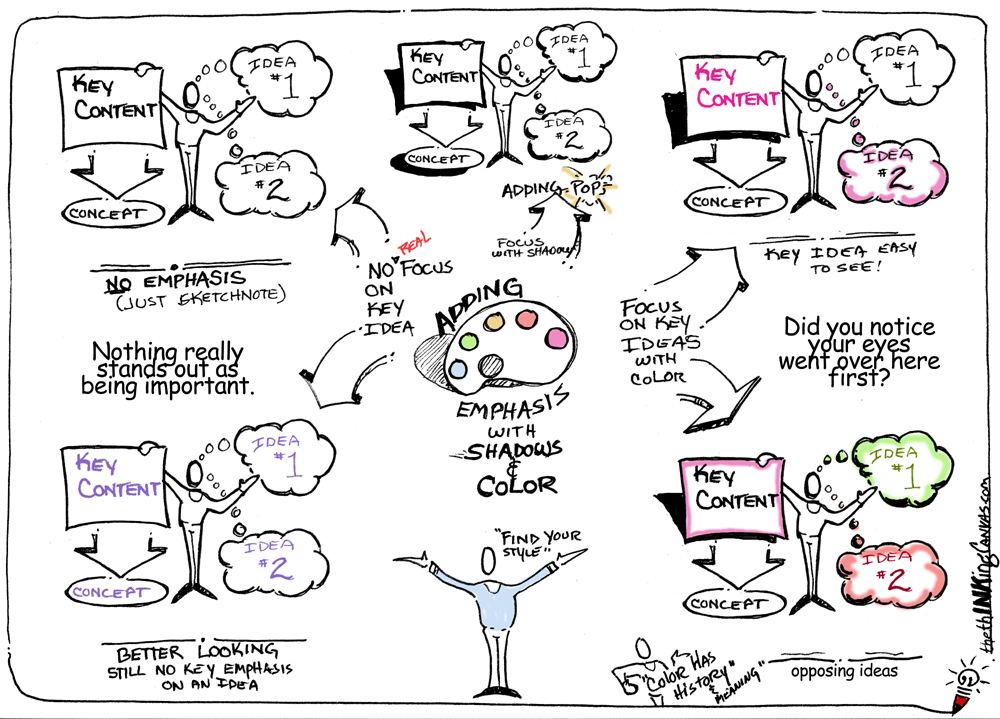 KEY
CONTENT
IDEA
#1
IDEA
#2
CONCEPT
NO EMPHASIS
(JUST SKETCHNOTE)
Nothing really
stands out as
being important.
KEY
CONTENT
IDEA
#1
IDEA
#2
CONCEPT
ADDING POP
FOCUS
WITH SHADOW
KEY
CONTENT
IDEA
#1
IDEA
#2
CONCEPT
KEY IDEA EASY
TO SEE!
REAL
NO FOCUS
ON
KEY
IDEA
ADDING
EMPHASIS
WITH
SHADOWS
&
COLOR
FOCUS
ON KEY
IDEAS
WITH
COLOR
Did you notice
your eyes
went over here
first?
KEY
CONTENT
IDEA
#1
IDEA
#2
CONCEPT
BETTER LOOKING
STILL NO KEY EMPHASIS
ON AN IDEA
"FIND YOUR
STYLE"
KEY
CONTENT
IDEA
#1
IDEA
#2
CONCEPT
"COLOR HAS
HISTORY"
& MEANING"
opposing ideas
thethINKingCanvas.com